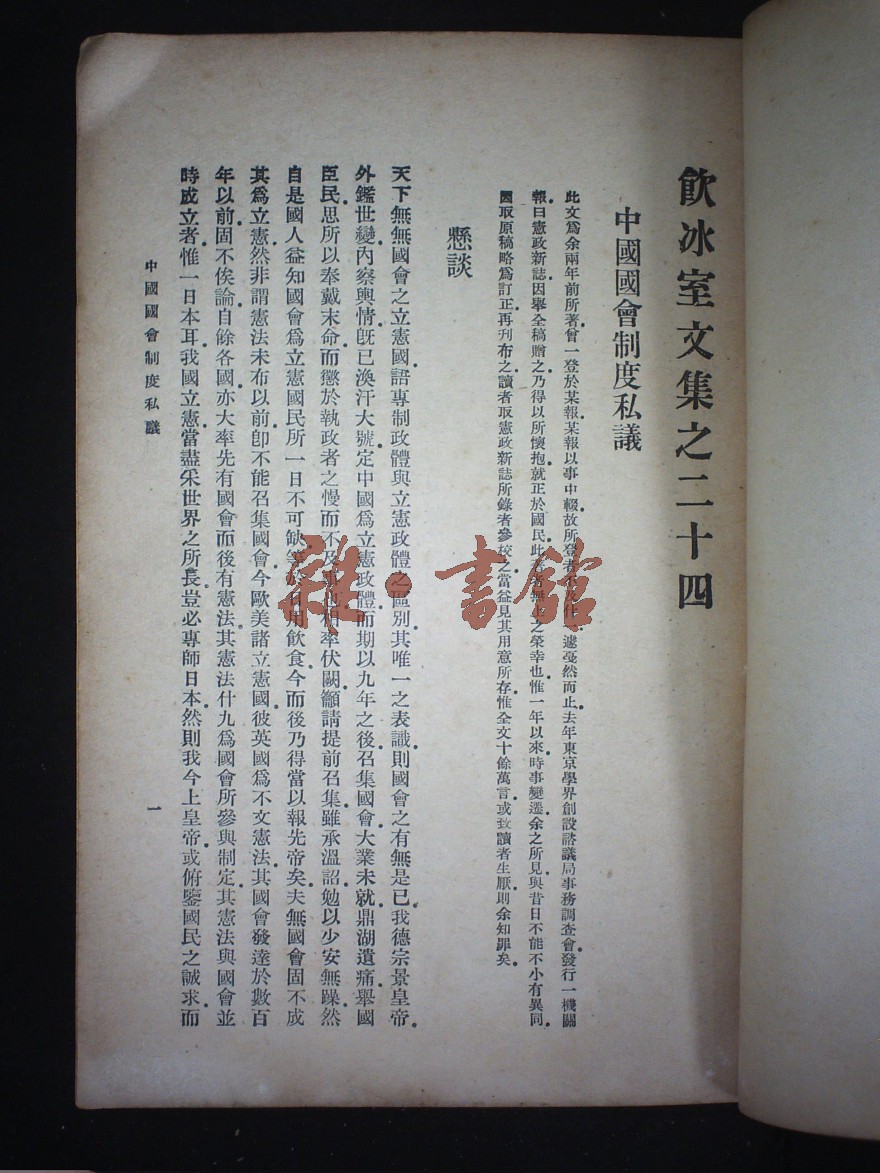 飲冰室文集之二十四
中國國會制度私議
此文爲余兩年前所著曾一登於某報某報以事中輟故所登者不及什一遽戛然而止去年東京學界創設諮議局事務調查會發行一機關
報曰憲政新誌因舉全稿贈之乃得以所懷抱就正於國民此著者無上之榮幸也惟一年以來時事變遷余之所見與昔日不能不小有異同
因取原稿略爲訂正再刊布之讀者取憲政新誌所錄者參校之當益見其用意所存惟全文十餘萬言或致讀者生厭則余知罪矣
懸談
天下無無國會之立憲國語專制政體與立憲政體之區別其唯一之表識則國會之有無是已我德宗景皇帝
外鑑世變內察輿情旣已渙汗大號定中國爲立憲政體而期以九年之後召集國會大業未就鼎湖遺痛舉國
臣民思所以奉戴末命而懲於執政者之慢而不及事也相率伏闕籲請提前召集雖承溫詔勉以少安無躁然
自是國人益知國會爲立憲國民所一日不可缺等於日用飲食今而後乃得當以報先帝矣夫無國會固不成
其爲立憲然非謂憲法未布以前卽不能召集國會今歐美諸立憲國彼英國爲不文憲法其國會發達於數百
年以前固不俟論自餘各國亦大率先有國會而後有憲法其憲法什九爲國會所參與制定其憲法與國會並
時成立者惟一日本耳我國立憲當盡采世界之所長豈必專師日本然則我今上皇帝或俯鑒國民之誠求而
中國國會制度私議
一
雜·書館